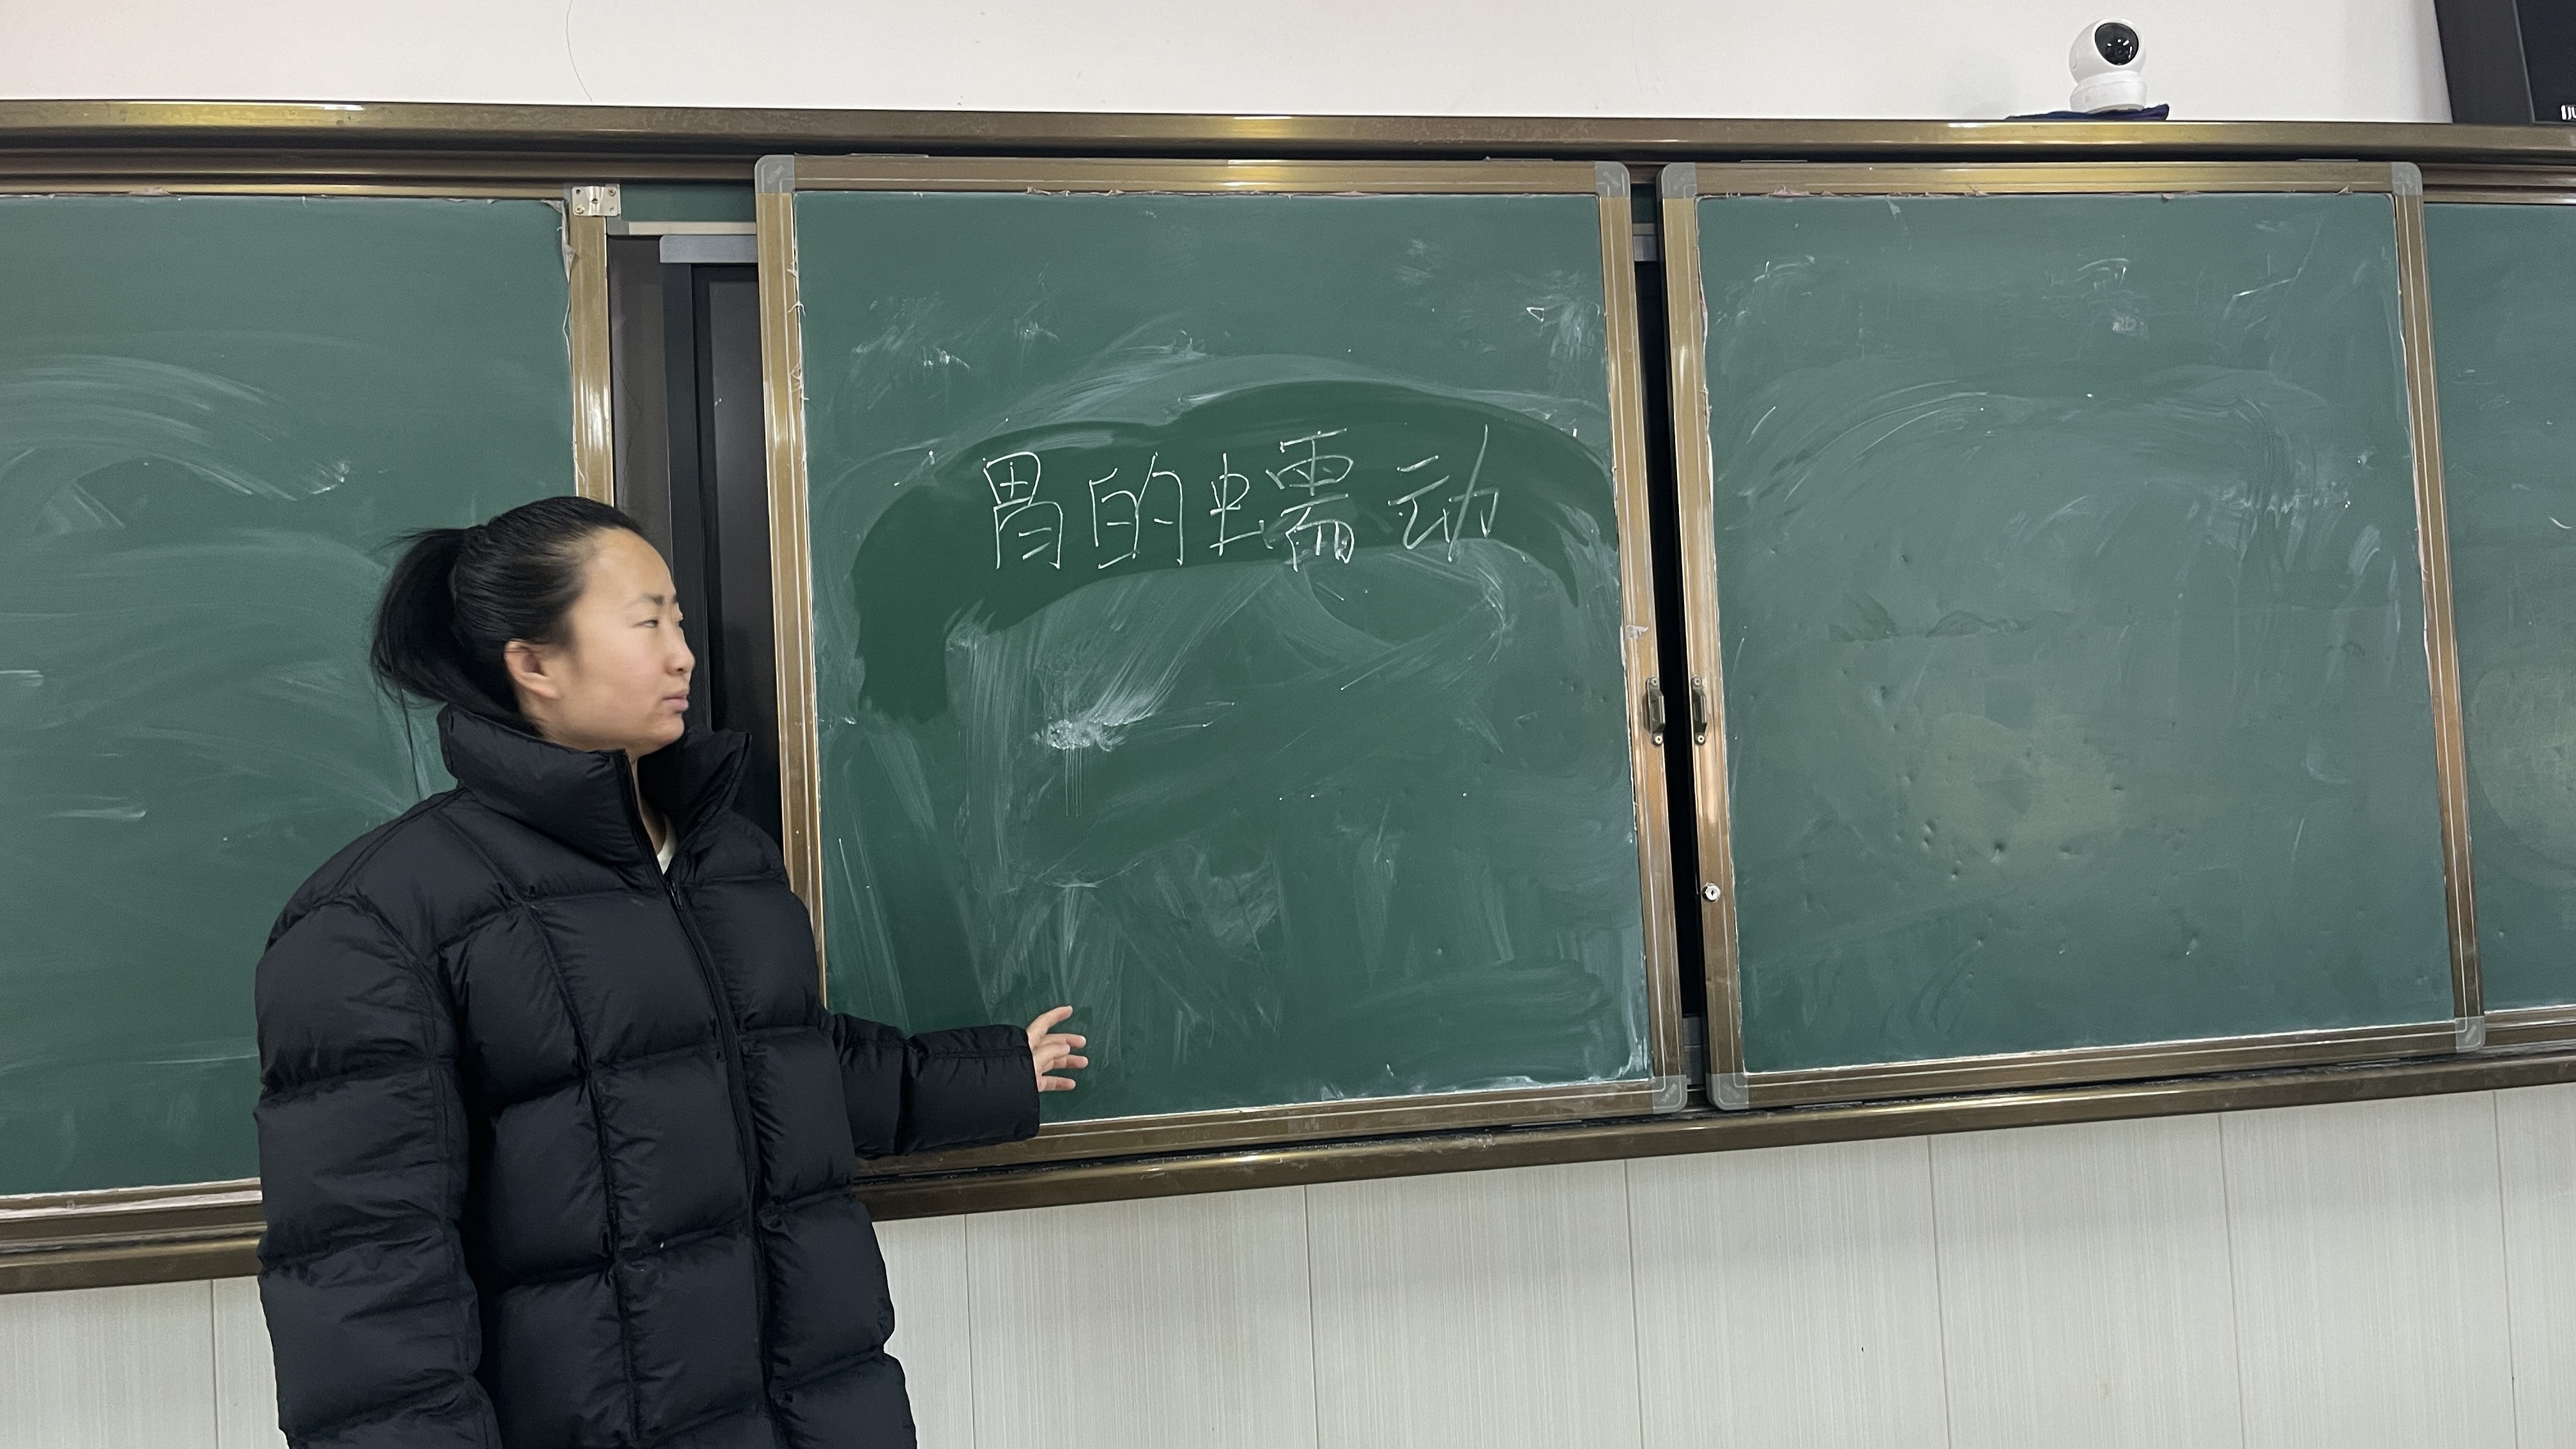 胃的蠕动